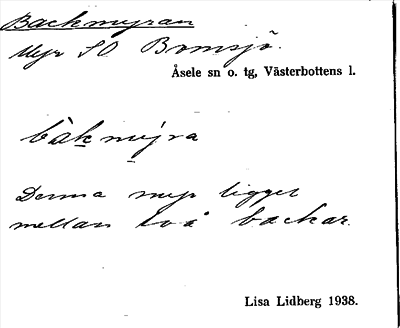 Backmyran
Myr SO Bomsjö.
Åsele sn o. tg, Västerbottens l.
bàkmỳra
Denna myr ligger
mellan två backar.
Lisa Lidberg 1938.